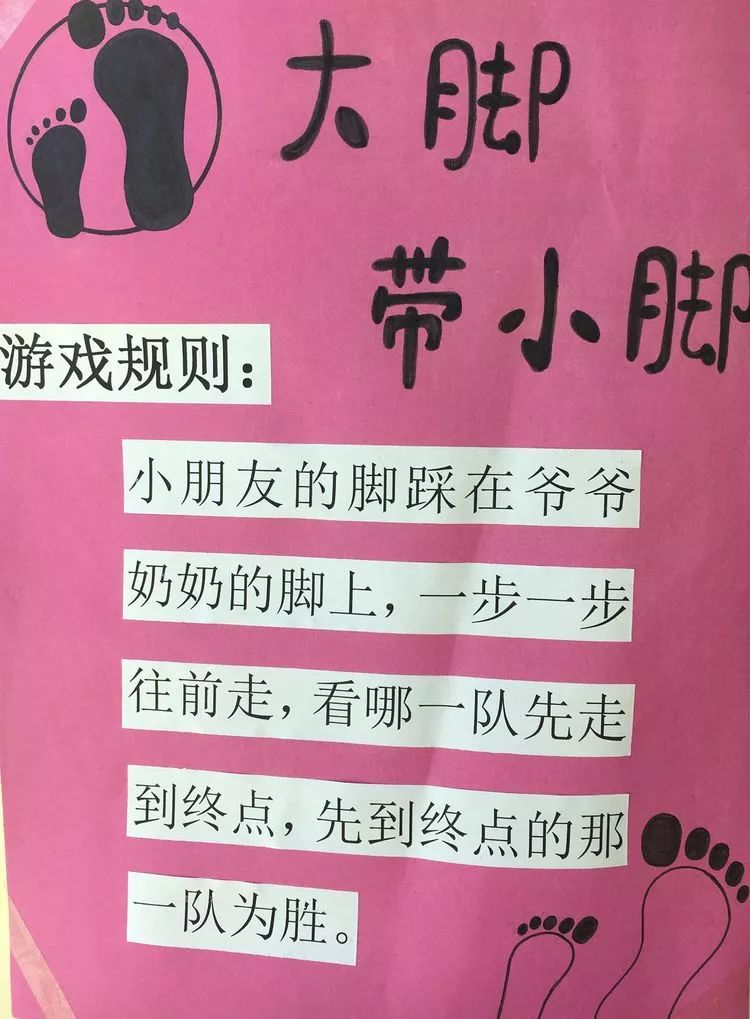 大脚
带小脚
游戏规则：
小朋友的脚踩在爷爷
奶奶的脚上，一步一步
往前走，看哪一队先走
到终点，先到终点的那
一队为胜。